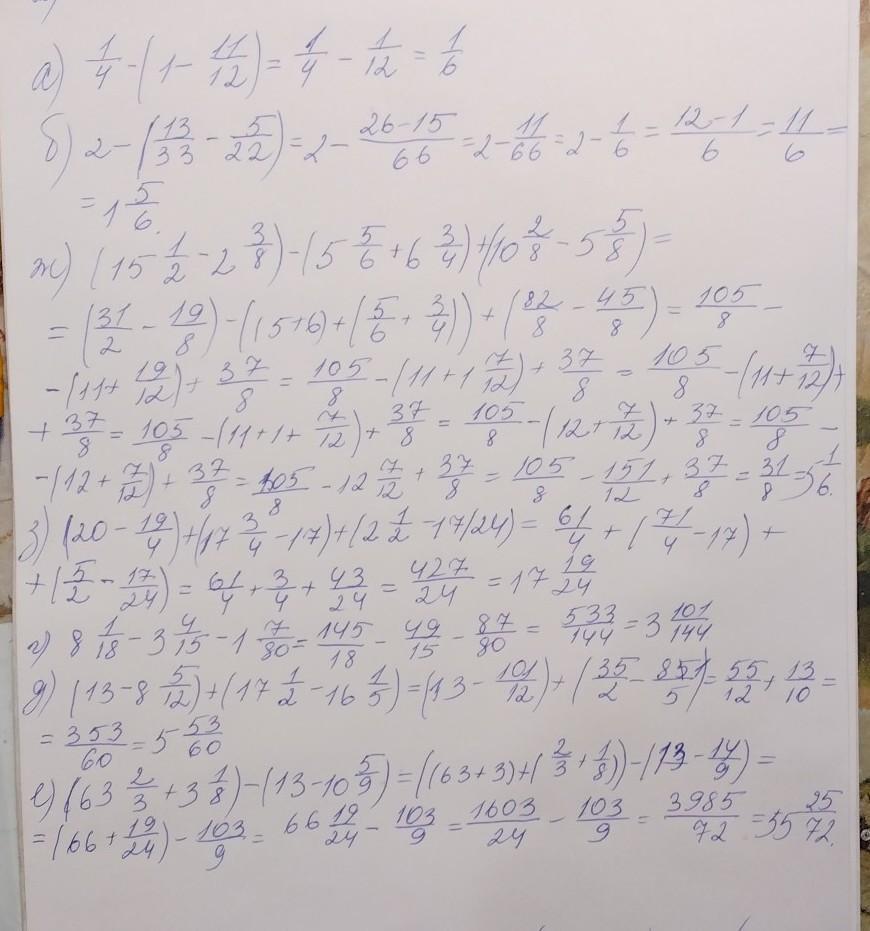 а) 1/4 - (1 - 11/12) = 1/4 - 1/12 = 1/6
б) 2 - (13/33 - 5/22) = 2 - (26-15)/66 = 2 - 11/66 = 2 - 1/6 = (12-1)/6 = 11/6 =
= 1 5/6.
ж) (15 1/2 - 2 3/8) - (5 5/6 + 6 3/4) + (10 2/8 - 5 5/8) =
= (31/2 - 19/8) - ((5+6) + (5/6 + 3/4)) + (82/8 - 45/8) = 105/8 -
- (11 + 19/12) + 37/8 = 105/8 - (11 + 1 7/12) + 37/8 = 105/8 - (11 + 7/12) +
+ 37/8 = 105/8 - (11 + 1 + 7/12) + 37/8 = 105/8 - (12 + 7/12) + 37/8 = 105/8 -
- (12 + 7/12) + 37/8 = 105/8 - 12 7/12 + 37/8 = 105/8 - 151/12 + 37/8 = 31/8 = 5 1/6.
з) (20 - 19/4) + (17 3/4 - 17) + (2 1/2 - 17/24) = 61/4 + (71/4 - 17) +
+ (5/2 - 17/24) = 61/4 + 3/4 + 43/24 = 427/24 = 17 19/24
г) 8 1/18 - 3 4/15 - 1 7/80 = 145/18 - 49/15 - 87/80 = 533/144 = 3 101/144
д) (13 - 8 5/12) + (17 1/2 - 16 1/5) = (13 - 101/12) + (35/2 - 81/5) = 55/12 + 13/10 =
= 353/60 = 5 53/60
е) (63 2/3 + 3 1/8) - (13 - 10 5/9) = ((63+3) + (2/3 + 1/8)) - (13 - 14/9) =
= (66 + 19/24) - 103/9 = 66 19/24 - 103/9 = 1603/24 - 103/9 = 3985/72 = 55 25/72.